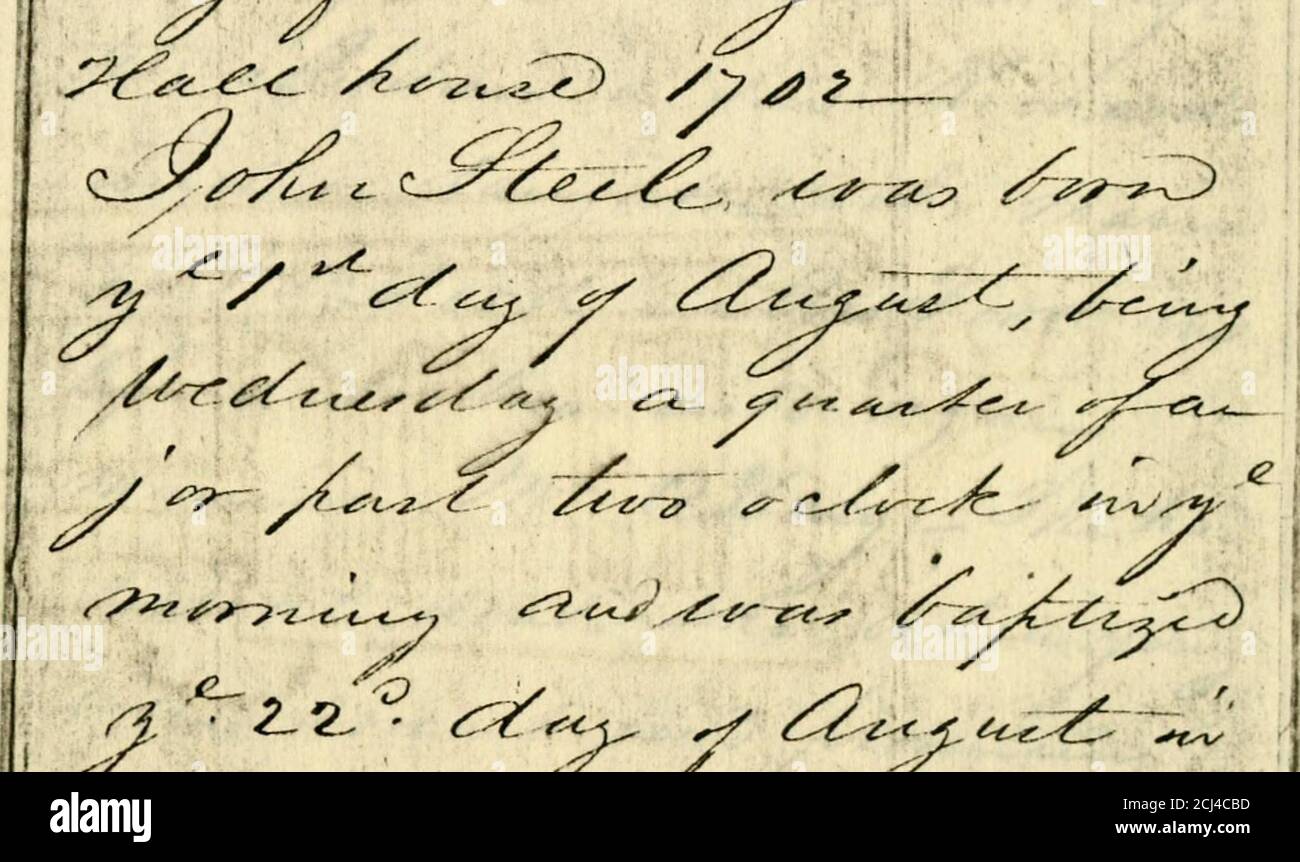 Hall house 1702
John Steele was born
yᵉ 1ˢᵗ day of August, being
Wednesday a quarter of an
jor past two o clock in yᵉ
morning and was baptized
yᵉ. 22ᵈ. day of August in
alamy
Image ID: 2CJ4CBD
www.alamy.com